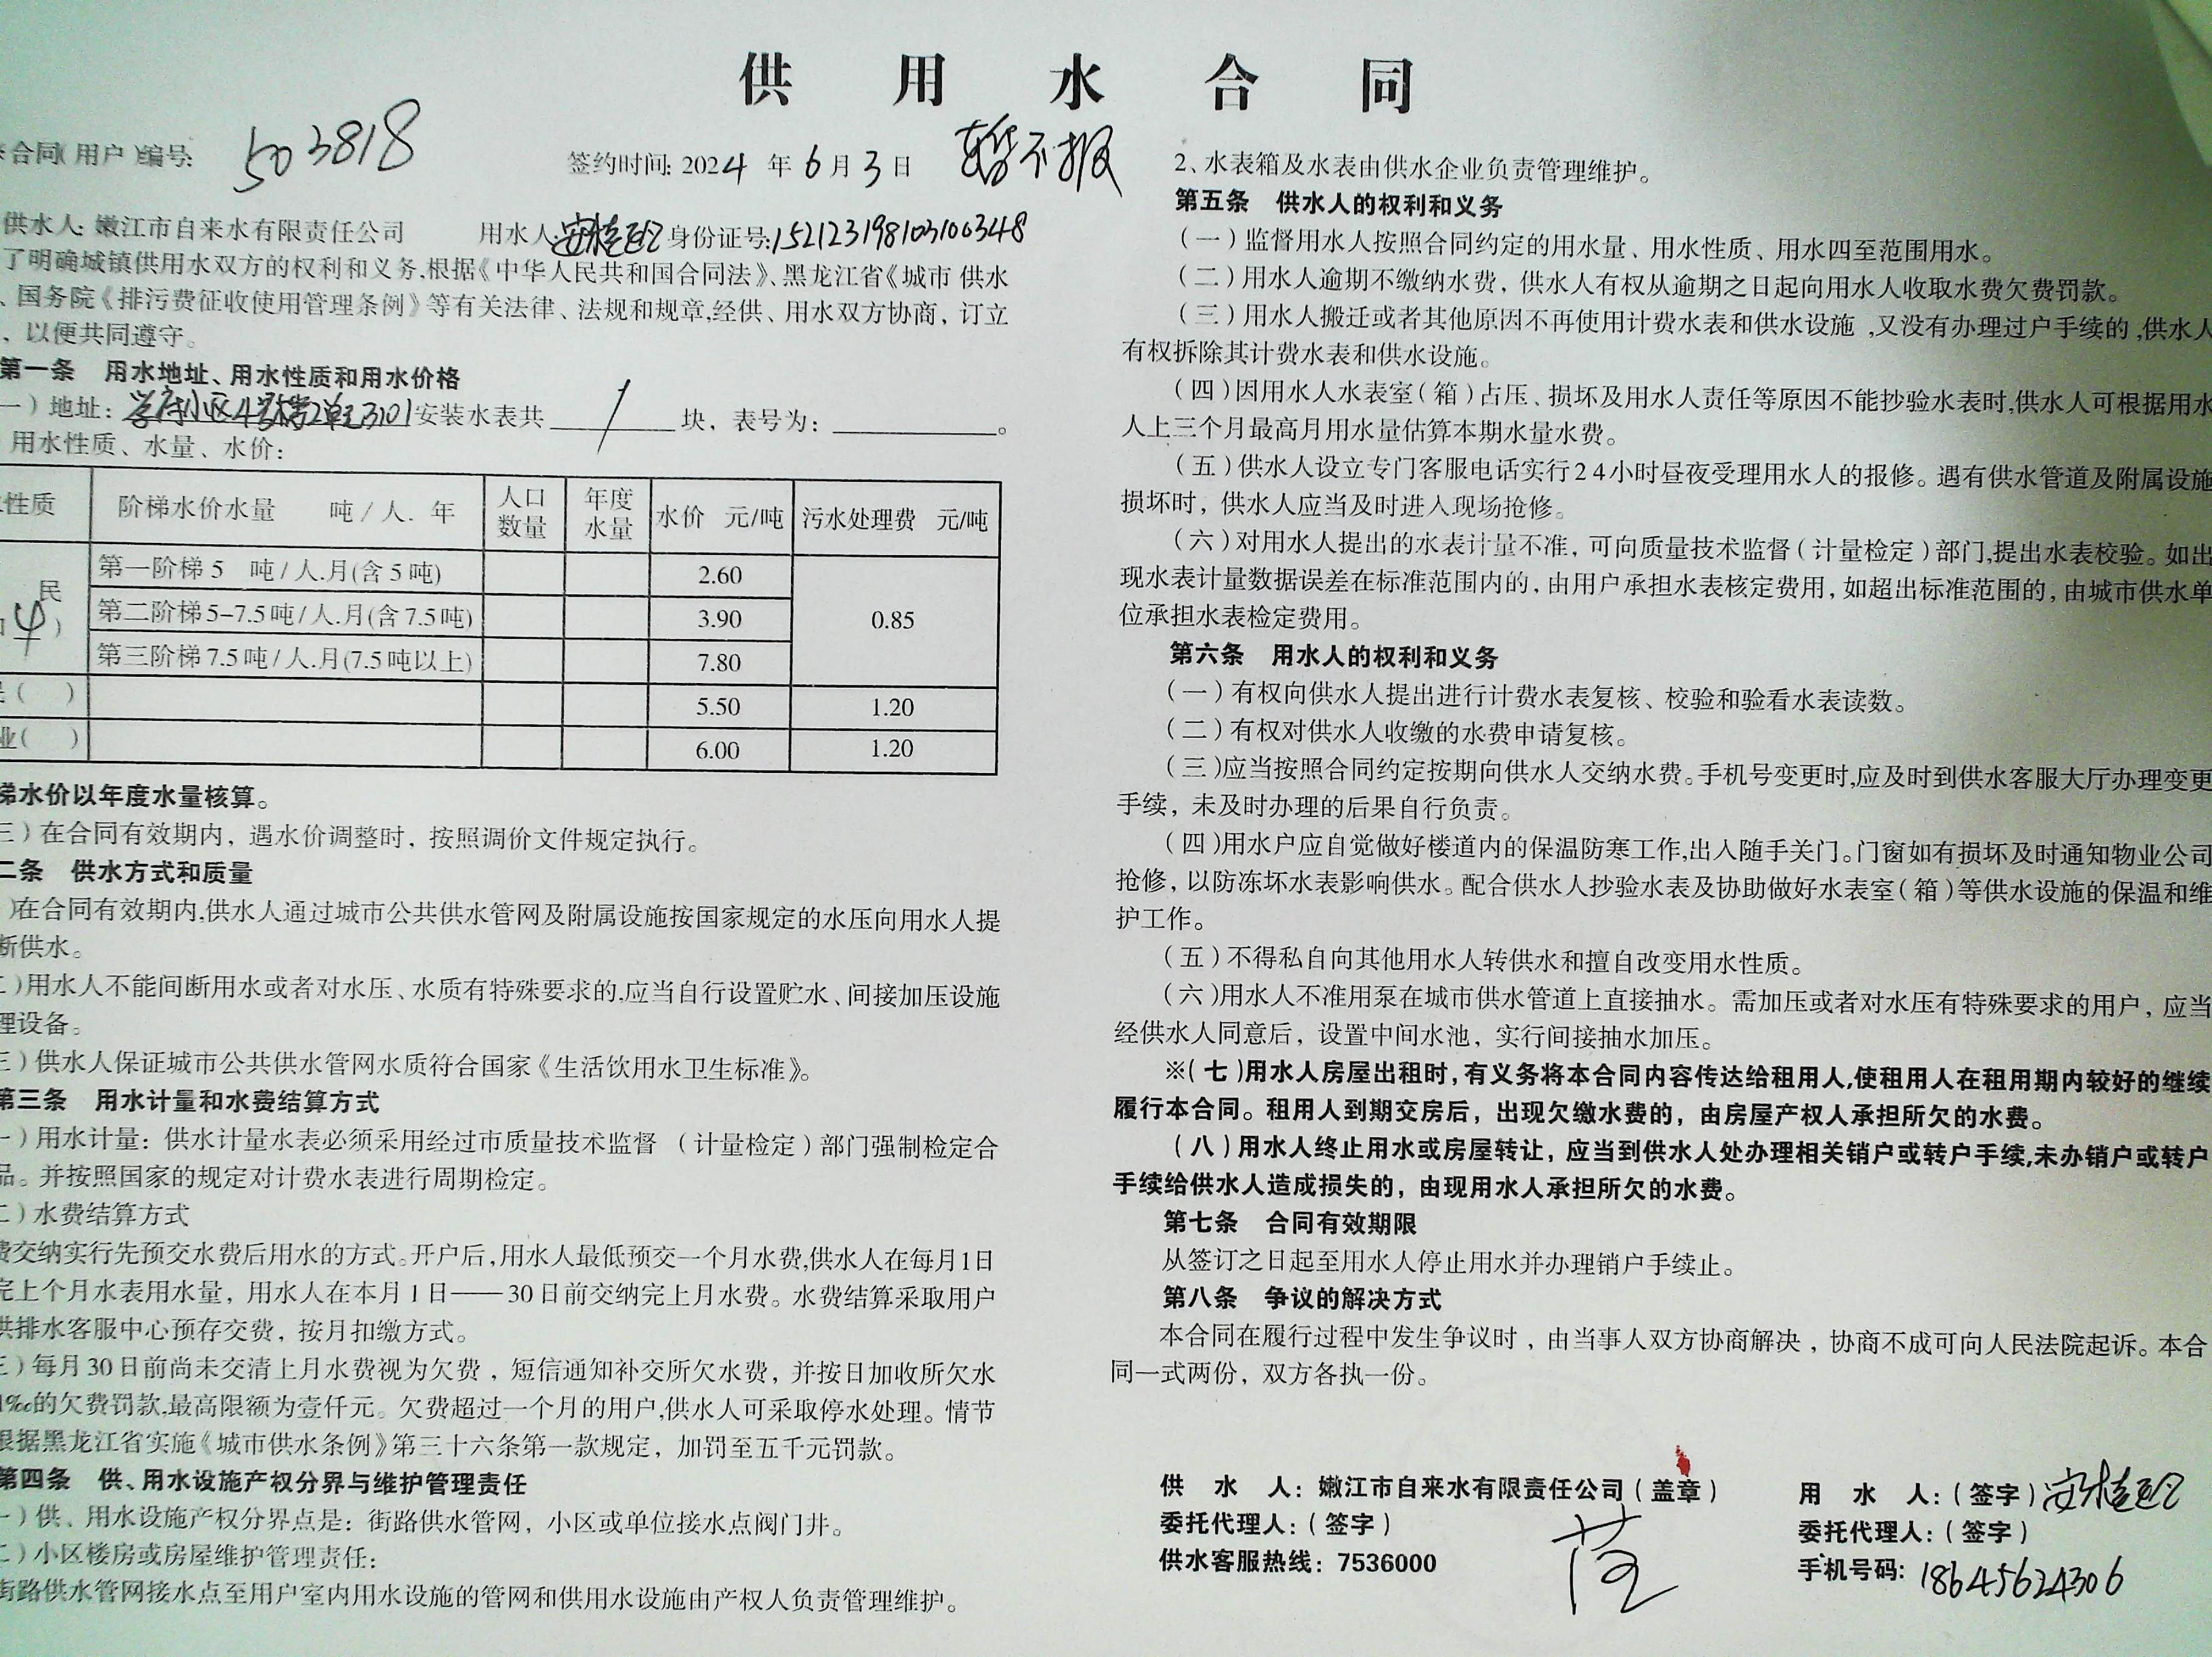 供 用 水 合 同
合同(用户)编号: 503818
签约时间: 2024 年 6 月 3 日 暂不报
供水人: 嫩江市自来水有限责任公司 用水人: 安桂 身份证号:152123198103100348
了明确城镇供用水双方的权利和义务,根据《中华人民共和国合同法》、黑龙江省《城市 供水
、国务院《排污费征收使用管理条例》等有关法律、法规和规章,经供、用水双方协商, 订立
, 以便共同遵守。
第一条 用水地址、用水性质和用水价格
一) 地址: 学府小区4号楼2单元3101 安装水表共 1 块, 表号为: 。
用水性质、水量、水价:
性质 阶梯水价水量 吨/人. 年 人口数量 年度水量 水价 元/吨 污水处理费 元/吨
民 第一阶梯 5 吨/人.月(含 5 吨) 2.60 0.85
第二阶梯 5-7.5 吨/人.月(含 7.5 吨) 3.90
第三阶梯 7.5 吨/人.月(7.5 吨以上) 7.80
( ) 5.50 1.20
业( ) 6.00 1.20
梯水价以年度水量核算。
三) 在合同有效期内, 遇水价调整时, 按照调价文件规定执行。
二条 供水方式和质量
)在合同有效期内,供水人通过城市公共供水管网及附属设施按国家规定的水压向用水人提
断供水。
二)用水人不能间断用水或者对水压、水质有特殊要求的,应当自行设置贮水、间接加压设施
理设备。
三) 供水人保证城市公共供水管网水质符合国家《生活饮用水卫生标准》。
第三条 用水计量和水费结算方式
一) 用水计量: 供水计量水表必须采用经过市质量技术监督 (计量检定) 部门强制检定合
品。并按照国家的规定对计费水表进行周期检定。
二) 水费结算方式
费交纳实行先预交水费后用水的方式。开户后, 用水人最低预交一个月水费,供水人在每月1日
完上个月水表用水量, 用水人在本月 1 日——30 日前交纳完上月水费。水费结算采取用户
供排水客服中心预存交费, 按月扣缴方式。
三) 每月 30 日前尚未交清上月水费视为欠费, 短信通知补交所欠水费, 并按日加收所欠水
1‰的欠费罚款,最高限额为壹仟元。欠费超过一个月的用户,供水人可采取停水处理。情节
根据黑龙江省实施《城市供水条例》第三十六条第一款规定, 加罚至五千元罚款。
第四条 供、用水设施产权分界与维护管理责任
一) 供、用水设施产权分界点是: 街路供水管网, 小区或单位接水点阀门井。
二) 小区楼房或房屋维护管理责任:
街路供水管网接水点至用户室内用水设施的管网和供用水设施由产权人负责管理维护。
2、水表箱及水表由供水企业负责管理维护。
第五条 供水人的权利和义务
(一) 监督用水人按照合同约定的用水量、用水性质、用水四至范围用水。
(二) 用水人逾期不缴纳水费, 供水人有权从逾期之日起向用水人收取水费欠费罚款。
(三) 用水人搬迁或者其他原因不再使用计费水表和供水设施 ,又没有办理过户手续的 ,供水人
有权拆除其计费水表和供水设施。
(四) 因用水人水表室(箱) 占压、损坏及用水人责任等原因不能抄验水表时,供水人可根据用水
人上三个月最高月用水量估算本期水量水费。
(五) 供水人设立专门客服电话实行24小时昼夜受理用水人的报修。遇有供水管道及附属设施
损坏时, 供水人应当及时进入现场抢修。
(六) 对用水人提出的水表计量不准, 可向质量技术监督(计量检定) 部门,提出水表校验。如出
现水表计量数据误差在标准范围内的, 由用户承担水表核定费用, 如超出标准范围的, 由城市供水单
位承担水表检定费用。
第六条 用水人的权利和义务
(一) 有权向供水人提出进行计费水表复核、校验和验看水表读数。
(二) 有权对供水人收缴的水费申请复核。
(三)应当按照合同约定按期向供水人交纳水费。手机号变更时,应及时到供水客服大厅办理变更
手续, 未及时办理的后果自行负责。
(四)用水户应自觉做好楼道内的保温防寒工作,出入随手关门。门窗如有损坏及时通知物业公司
抢修, 以防冻坏水表影响供水。配合供水人抄验水表及协助做好水表室(箱) 等供水设施的保温和维
护工作。
(五)不得私自向其他用水人转供水和擅自改变用水性质。
(六)用水人不准用泵在城市供水管道上直接抽水。需加压或者对水压有特殊要求的用户, 应当
经供水人同意后, 设置中间水池, 实行间接抽水加压。
※(七)用水人房屋出租时, 有义务将本合同内容传达给租用人,使租用人在租用期内较好的继续
履行本合同。租用人到期交房后, 出现欠缴水费的, 由房屋产权人承担所欠的水费。
(八) 用水人终止用水或房屋转让, 应当到供水人处办理相关销户或转户手续,未办销户或转户
手续给供水人造成损失的, 由现用水人承担所欠的水费。
第七条 合同有效期限
从签订之日起至用水人停止用水并办理销户手续止。
第八条 争议的解决方式
本合同在履行过程中发生争议时, 由当事人双方协商解决, 协商不成可向人民法院起诉。本合
同一式两份, 双方各执一份。
供 水 人: 嫩江市自来水有限责任公司(盖章)
委托代理人: (签字)
供水客服热线: 7536000
用 水 人: (签字) 安桂
委托代理人: (签字)
手机号码: 18645624306